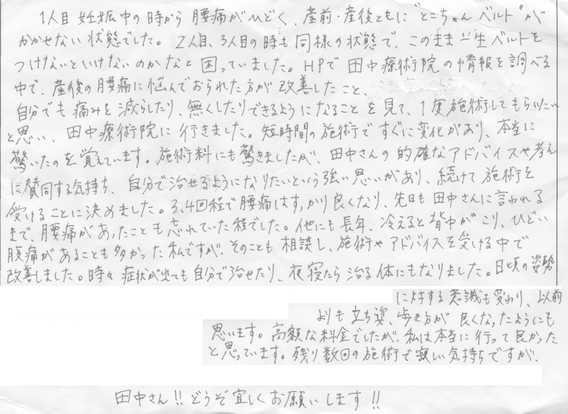 1人目 妊娠中の時から 腰痛がひどく、産前・産後ともに"とこちゃんベルト"が
かかせない状態でした。2人目、3人目の時も同様の状態で、このまま一生ベルトを
つけないといけないのかなと困っていました。HPで田中療術院の情報を調べる
中で、産後の腰痛に悩んでおられた方が改善したこと、
自分でも痛みを減らしたり、無くしたりできるようになることを見て、1度施術してもらいたい
と思い、田中療術院に行きました。短時間の施術ですぐに変化があり、本当に
驚いたのを覚えています。施術料にも驚きましたが、田中さんの的確なアドバイスや考え
に賛同する気持ち、自分で治せるようになりたいという強い思いがあり、続けて施術を
受けることに決めました。3、4回程で腰痛はすっかり良くなり、先日も田中さんに言われる
まで、腰痛があったことも忘れていた程でした。他にも長年、冷えると背中がこり、ひどい
腹痛があることも多かった私ですが、そのことも相談し、施術やアドバイスを受ける中で
改善しました。時々症状が出ても自分で治せたり、夜寝たら治る体にもなりました。日頃の姿勢
に対する意識も変わり、以前
よりも立ち姿、歩き方が良くなったようにも
思います。高額な料金でしたが、私は本当に行って良かった
と思っています。残り数回の施術で寂しい気持ちですが、
田中さん!!どうぞ宜しくお願いします!!